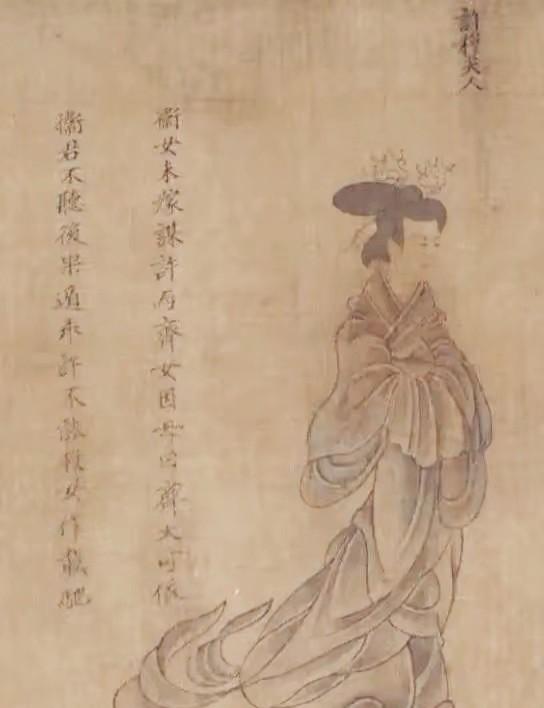 許穆夫人
衛女未嫁謀許与齊女因母曰齊大可依
衛君不聽後果遁逃許不能救女作載馳